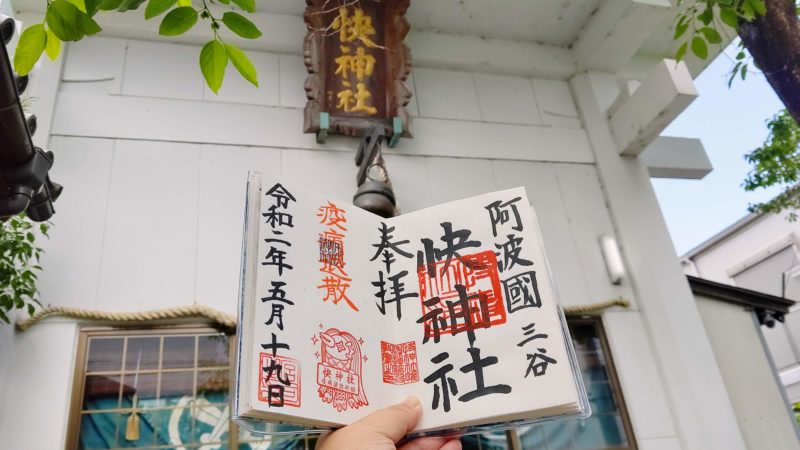 快神社
阿波國三谷
快神社
奉拝
疫病退散
快神社
令和二年五月十九日